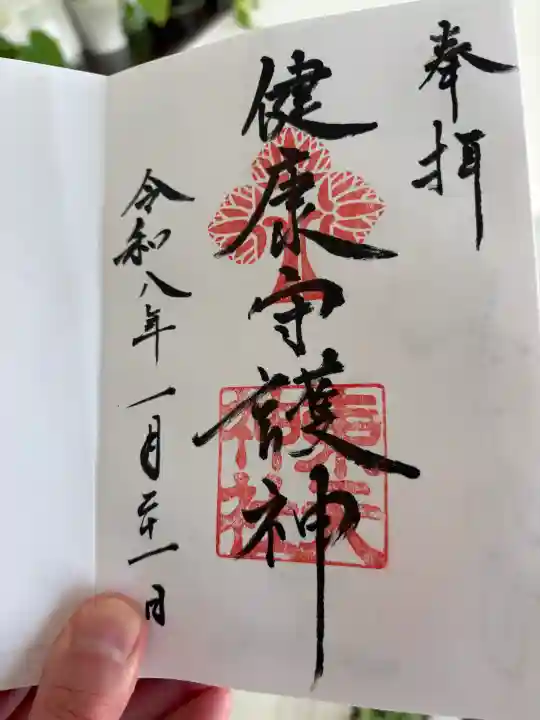 奉拝
健康守護神
東天
神社
令和八年一月二十一日